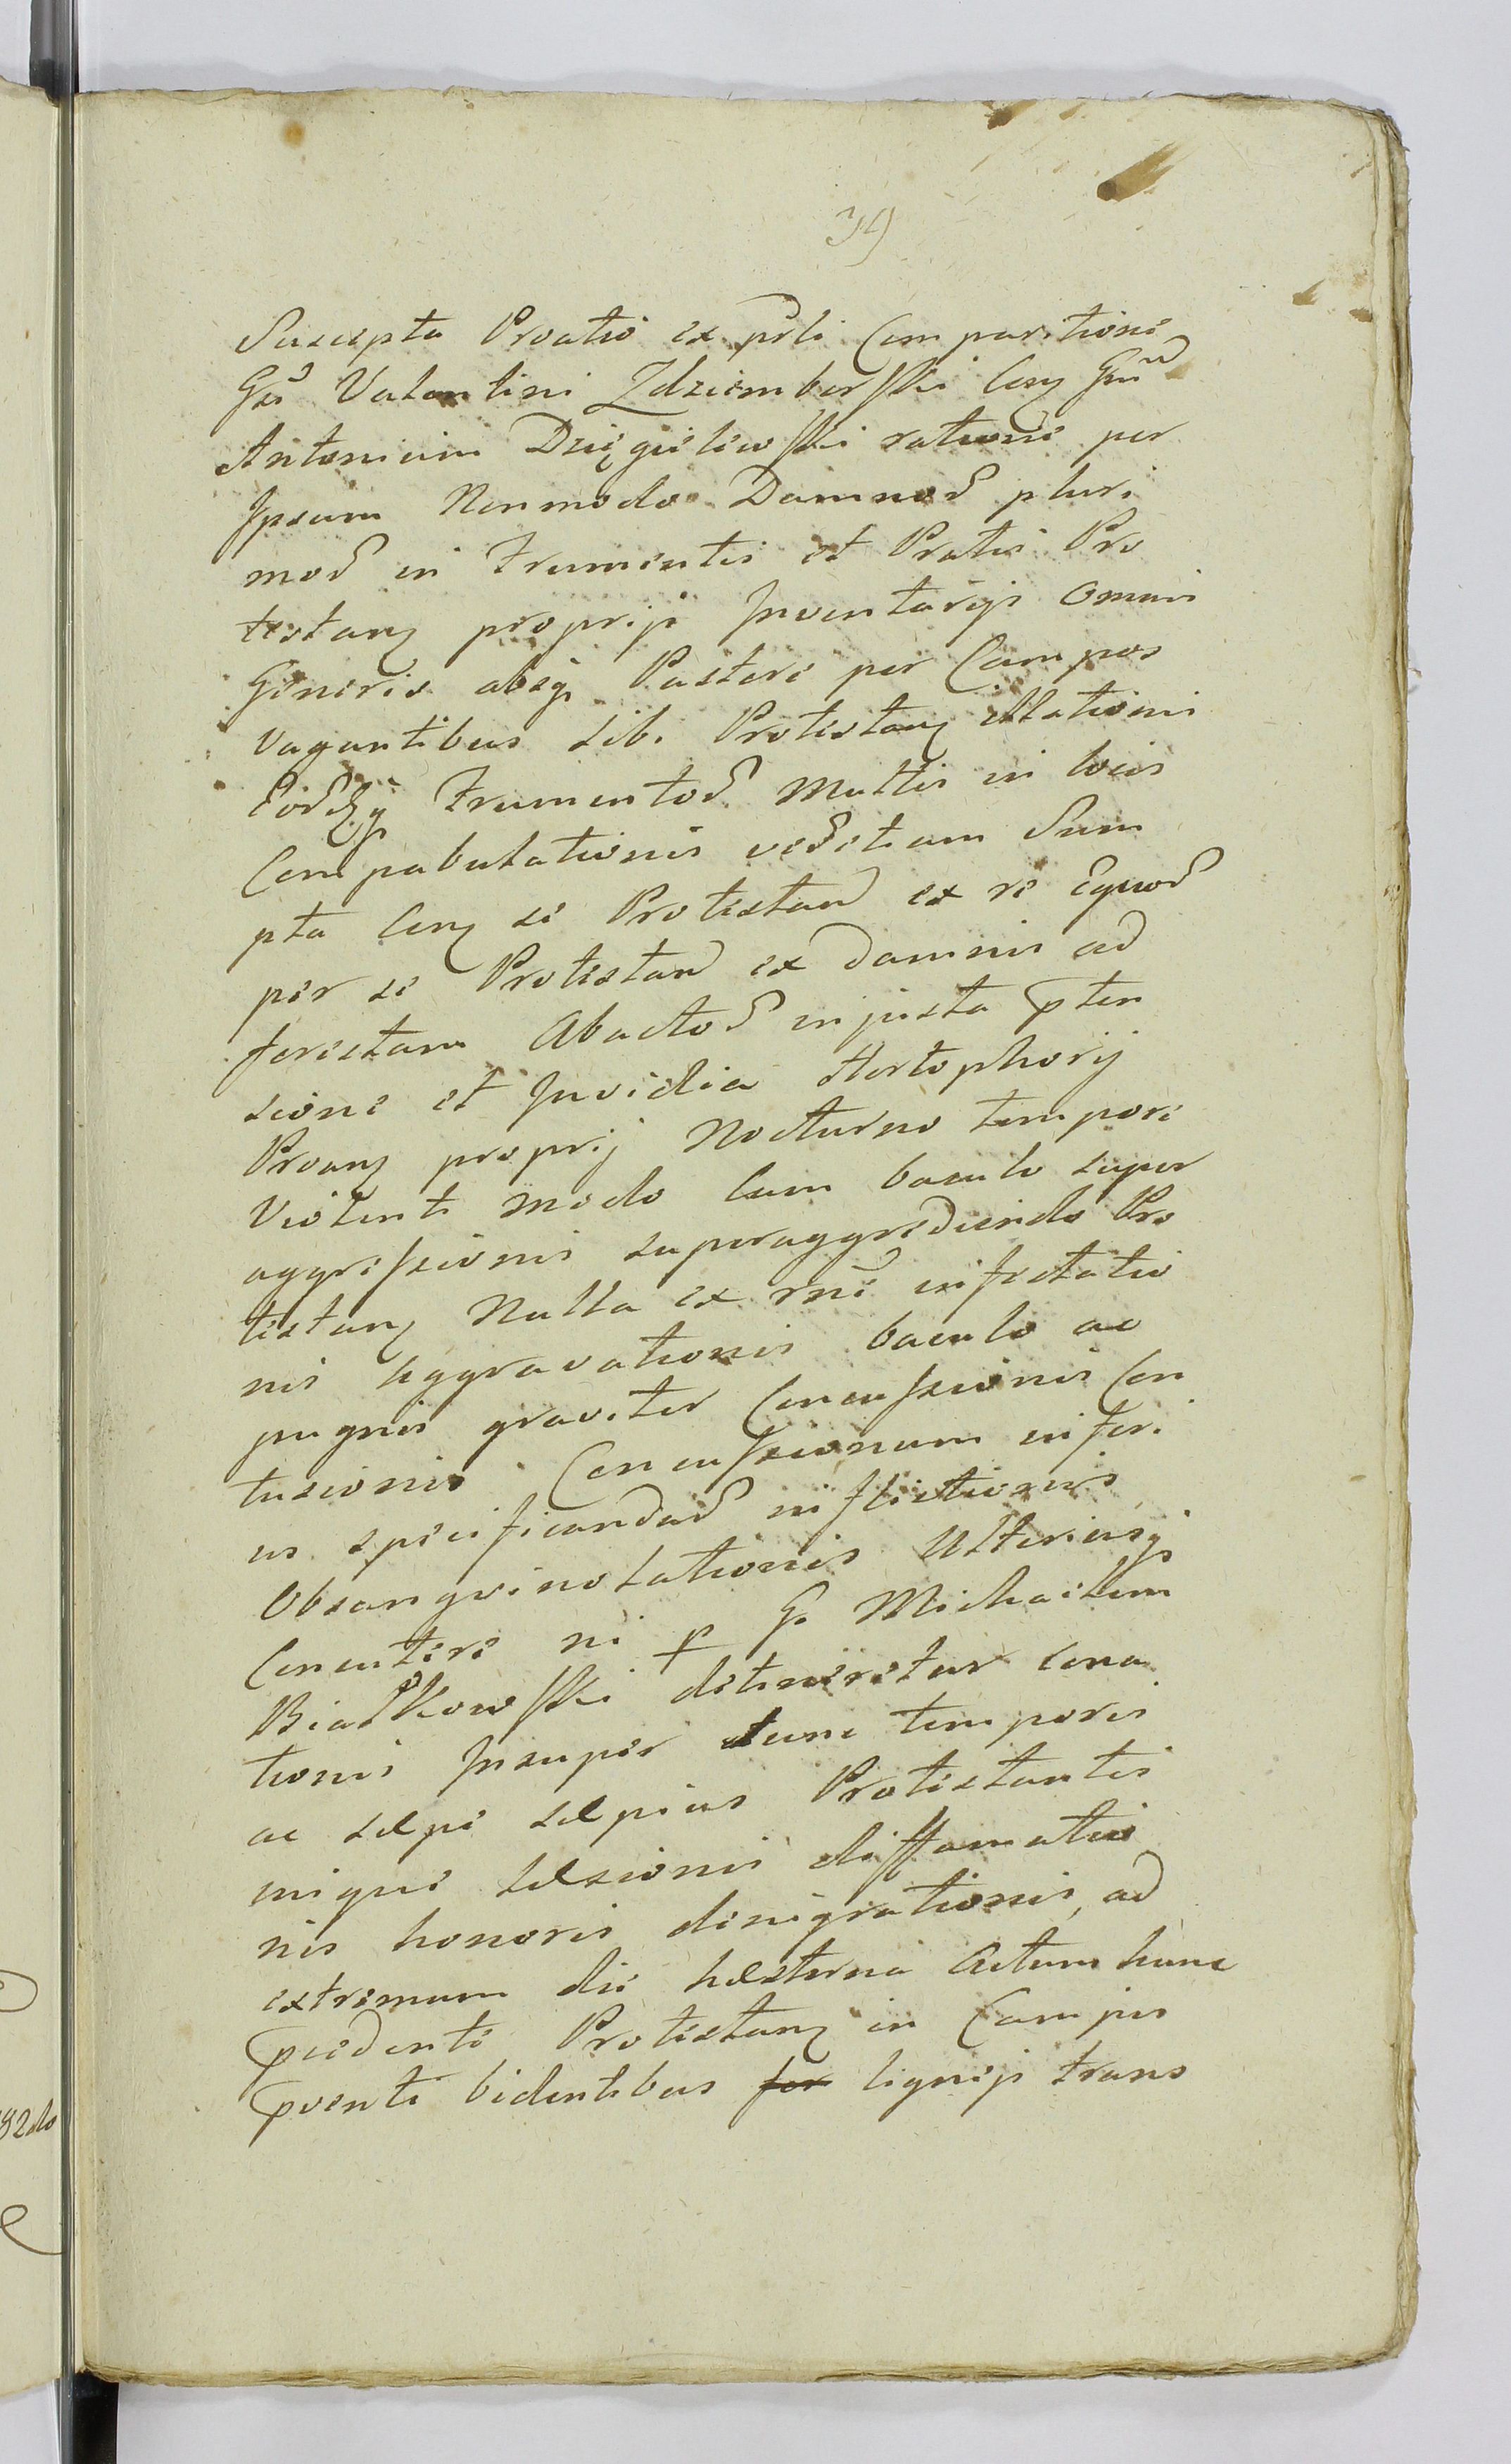 Suscepta Proatio ex prsli Comparitione
Gsi Valentini Zdziemborski Coram Gnum
Antonium Dzięgielewski ratione per
Ipsum Nonmodo Damnor pluri
mor in Frumentis et Pratis Pro
testan proprijs Inventarijs Omnis
Generis absq Pastore per Campos
Vagantibus sibi Protestan illationi
Eordq Frumentor Multis in locis
Compabulationis verietiam Sum
pta Con se Protestan ex re Equor
per se Protestan ex damnis ad
forestam Abactor injusta pten
sione et Invidia Hortophorij
Proan proprij Nocturno tempore
Violenti modo Cum baculo super
aggressionis superaggrediendo Pro
testan Nulla ex rne infestatio
nis Aggravationis baculo ac
pugnis graviter Concussionis Con
tusionis Concussionum inferi
us specificandar inflictionis
Obsangvinolationis Ulteriusq
Concutere ni p G Michaelem
Białkowski detineretur cona
tionis Insuper tunc temporis
ac sæpe sæpius Protestantis
inique læsionis diffamatio
nis honoris denigrationis, ad
extremum die hesterna Actum hunc
pcedenti Protestan in Campis
pventi bidentibus ligneijs trans